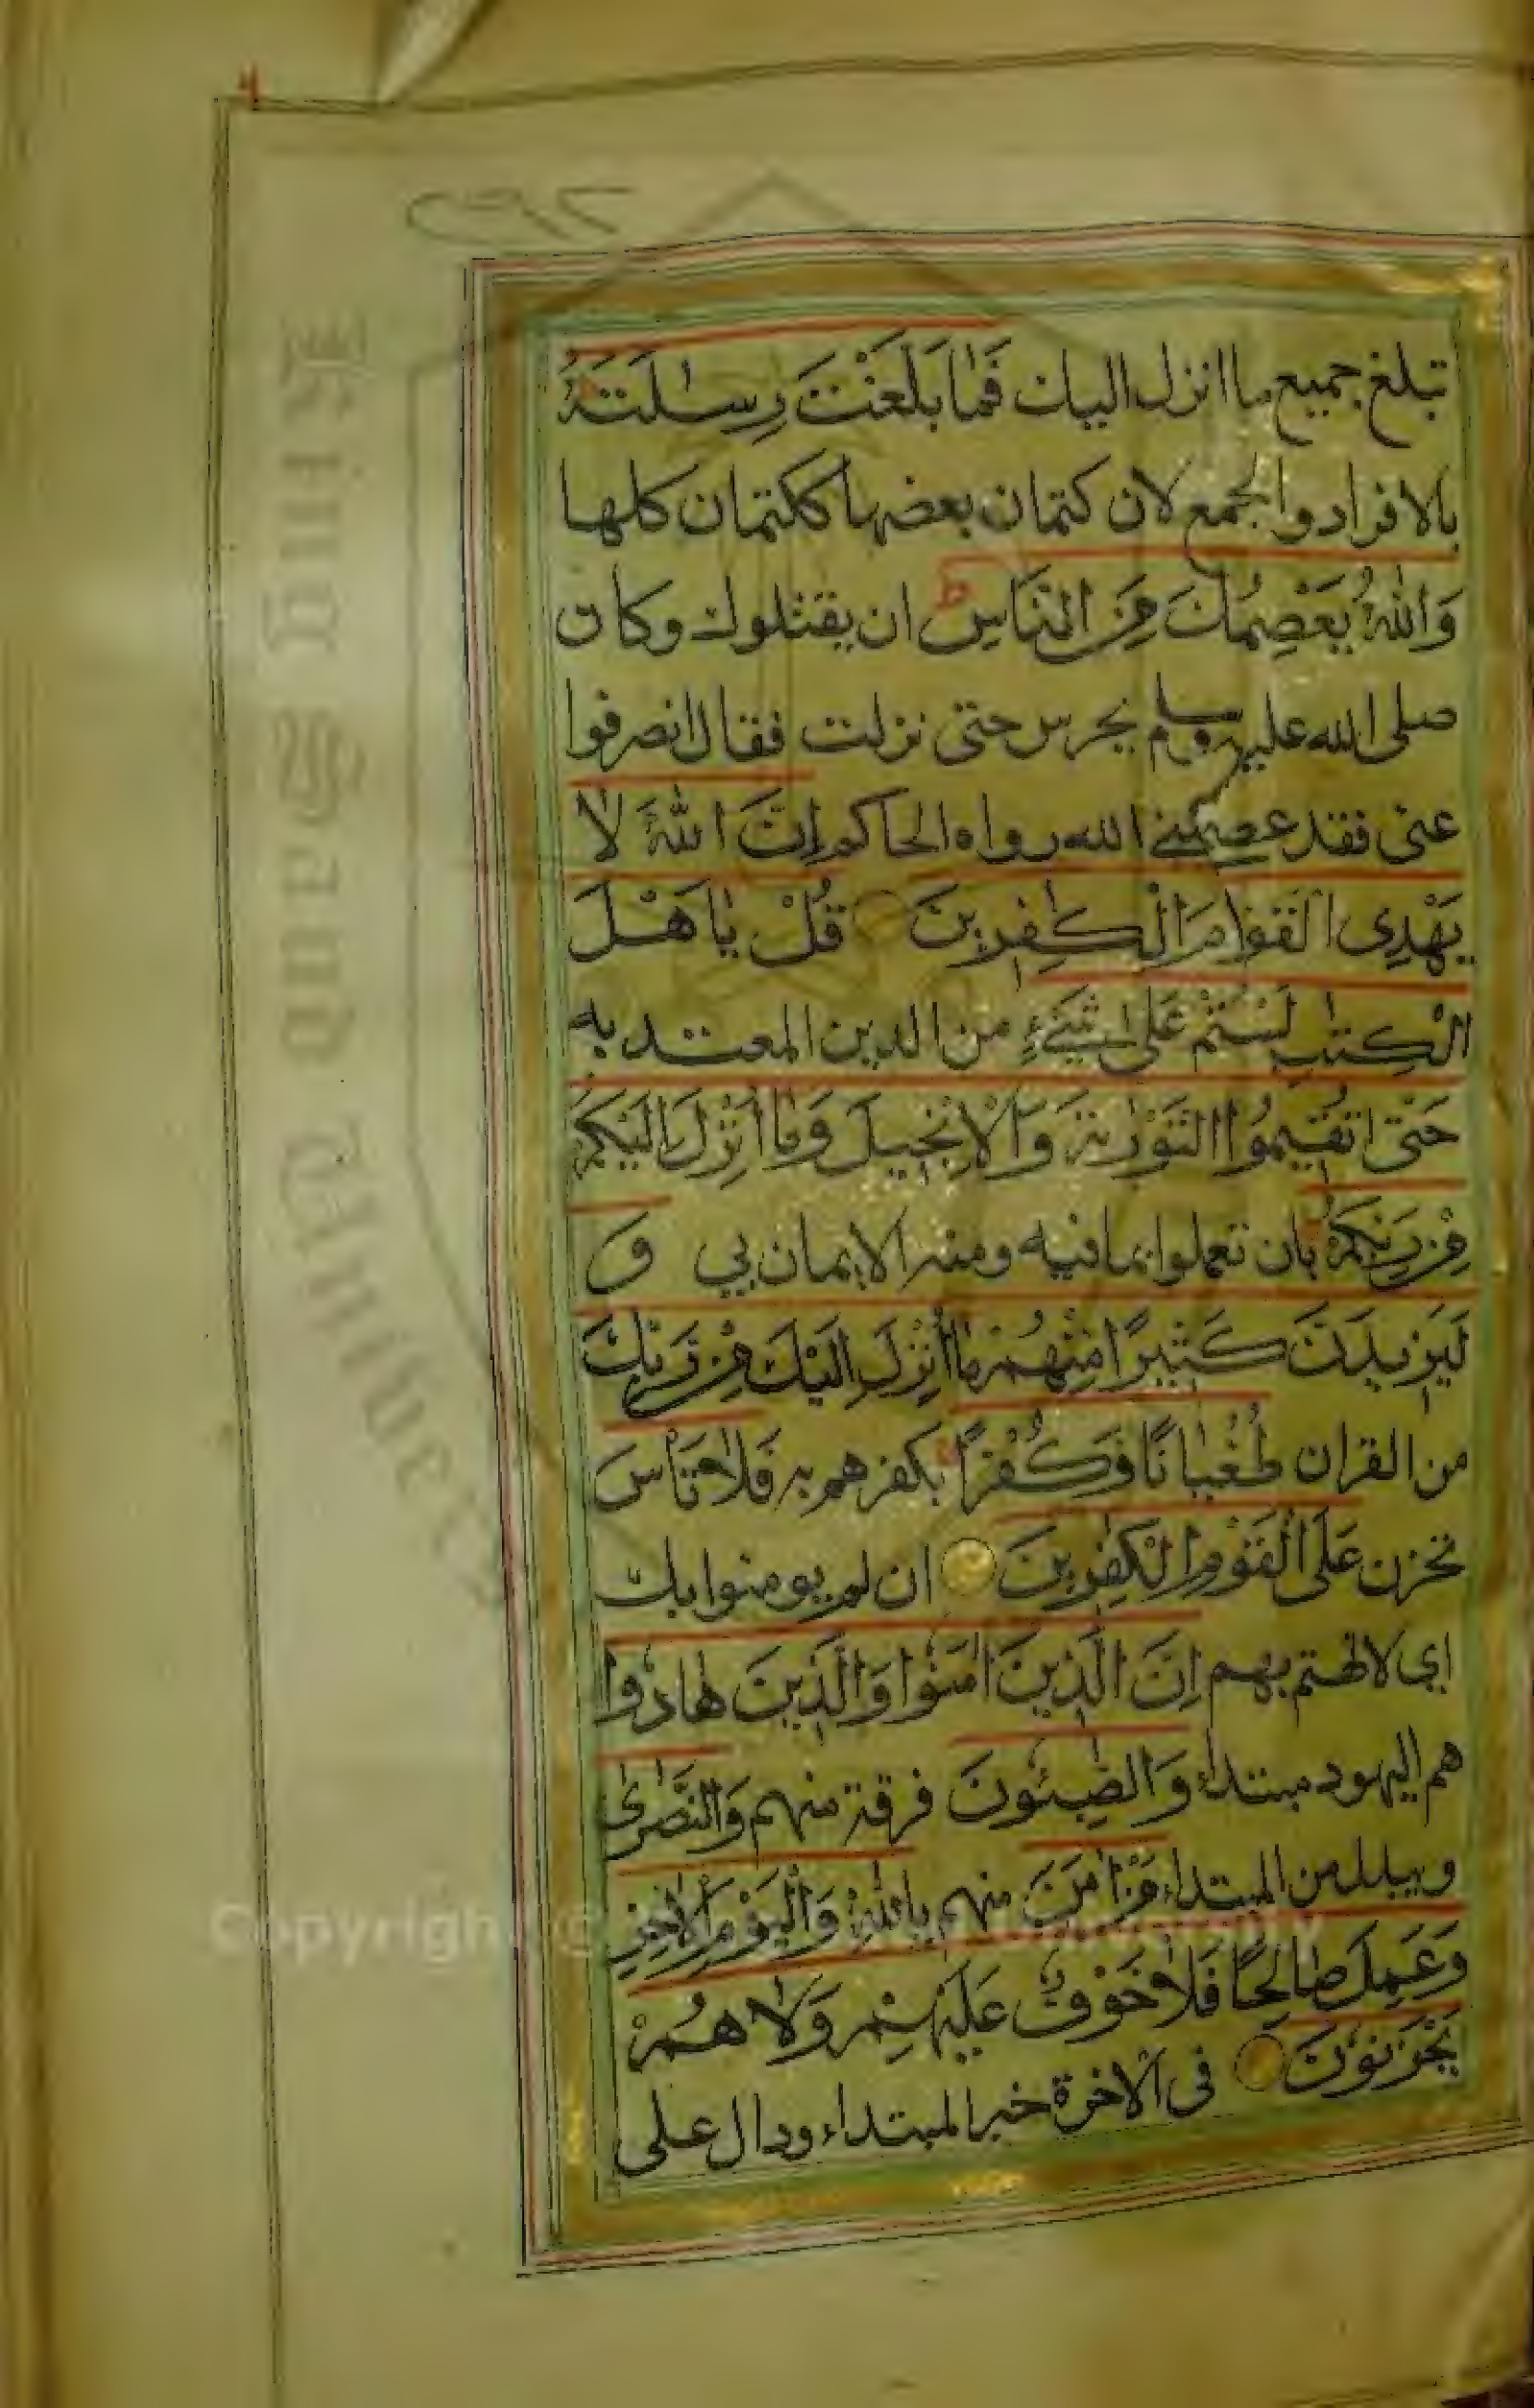 تبلغ جميع ما انزل اليك فَمَا بَلَّغْتَ رِسٰلَتَهُ
بالافراد والجمع لان كتمان بعضها ككتمان كلها
وَاللّٰهُ يَعْصِمُكَ مِنَ النَّاسِ ان يقتلوك وكان
صلى الله عليه وسلم يحرس حتى نزلت فقال انصرفوا
عنى فقد عصمنى الله رواه الحاكم اِنَّ اللّٰهَ لَا
يَهْدِى الْقَوْمَ الْكٰفِرِينَ قُلْ يٰاَهْلَ
الْكِتٰبِ لَسْتُمْ عَلٰى شَىْءٍ من الدين المعتد به
حَتّٰى تُقِيمُوا التَّوْرٰىةَ وَالْاِنْجِيلَ وَمَا اُنْزِلَ اِلَيْكُمْ
مِنْ رَبِّكُمْ بان تعملوا بما فيه ومنه الايمان بي و
لَيَزِيدَنَّ كَثِيرًا مِنْهُمْ مَا اُنْزِلَ اِلَيْكَ مِنْ رَبِّكَ
من القران طُغْيَانًا وَكُفْرًا بكفرهم به فَلَا تَأْسَ
تحزن عَلَى الْقَوْمِ الْكٰفِرِينَ ان لم يومنوا بك
اي لا تهتم بهم اِنَّ الَّذِينَ اٰمَنُوا وَالَّذِينَ هَادُوا
هم اليهود مبتداء وَالصّٰبِئُونَ فرقة منهم وَالنَّصٰرٰى
ويبدل من المبتداء مَنْ اٰمَنَ منهم بِاللّٰهِ وَالْيَوْمِ الْاٰخِرِ
وَعَمِلَ صَالِحًا فَلَا خَوْفٌ عَلَيْهِمْ وَلَا هُمْ
يَحْزَنُونَ فى الاخرة خبر المبتداء ودال على